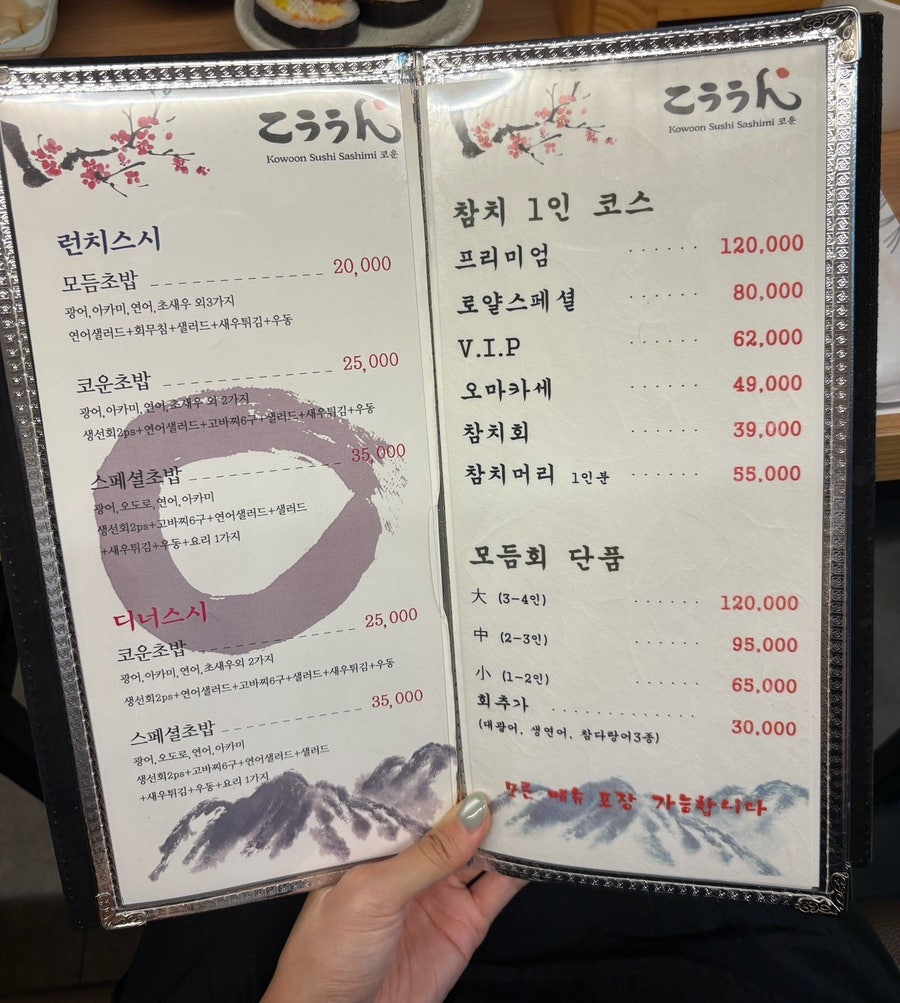 こううん
Kowoon Sushi Sashimi 코운
런치스시
모듬초밥 20,000
광어,아카미,연어,초새우 외3가지
연어샐러드+회무침+샐러드+새우튀김+우동
코운초밥 25,000
광어,아카미,연어,초새우 외 2가지
생선회2ps+연어샐러드+고바찌6구+샐러드+새우튀김+우동
스페셜초밥 35,000
광어,오도로,연어,아카미
생선회2ps+고바찌6구+연어샐러드+샐러드
+새우튀김+우동+요리 1가지
디너스시
코운초밥 25,000
광어,아카미,연어,초새우외 2가지
생선회2ps+연어샐러드+고바찌6구+샐러드+새우튀김+우동
스페셜초밥 35,000
광어,오도로,연어,아카미
생선회2ps+고바찌6구+연어샐러드+샐러드
+새우튀김+우동+요리 1가지
こううん
Kowoon Sushi Sashimi 코운
참치 1인 코스
프리미엄 120,000
로얄스페셜 80,000
V.I.P 62,000
오마카세 49,000
참치회 39,000
참치머리 1인분 55,000
모듬회 단품
大 (3-4인) 120,000
中 (2-3인) 95,000
小 (1-2인) 65,000
회추가 30,000
(대광어, 생연어, 참다랑어3종)
모든 메뉴 포장 가능합니다